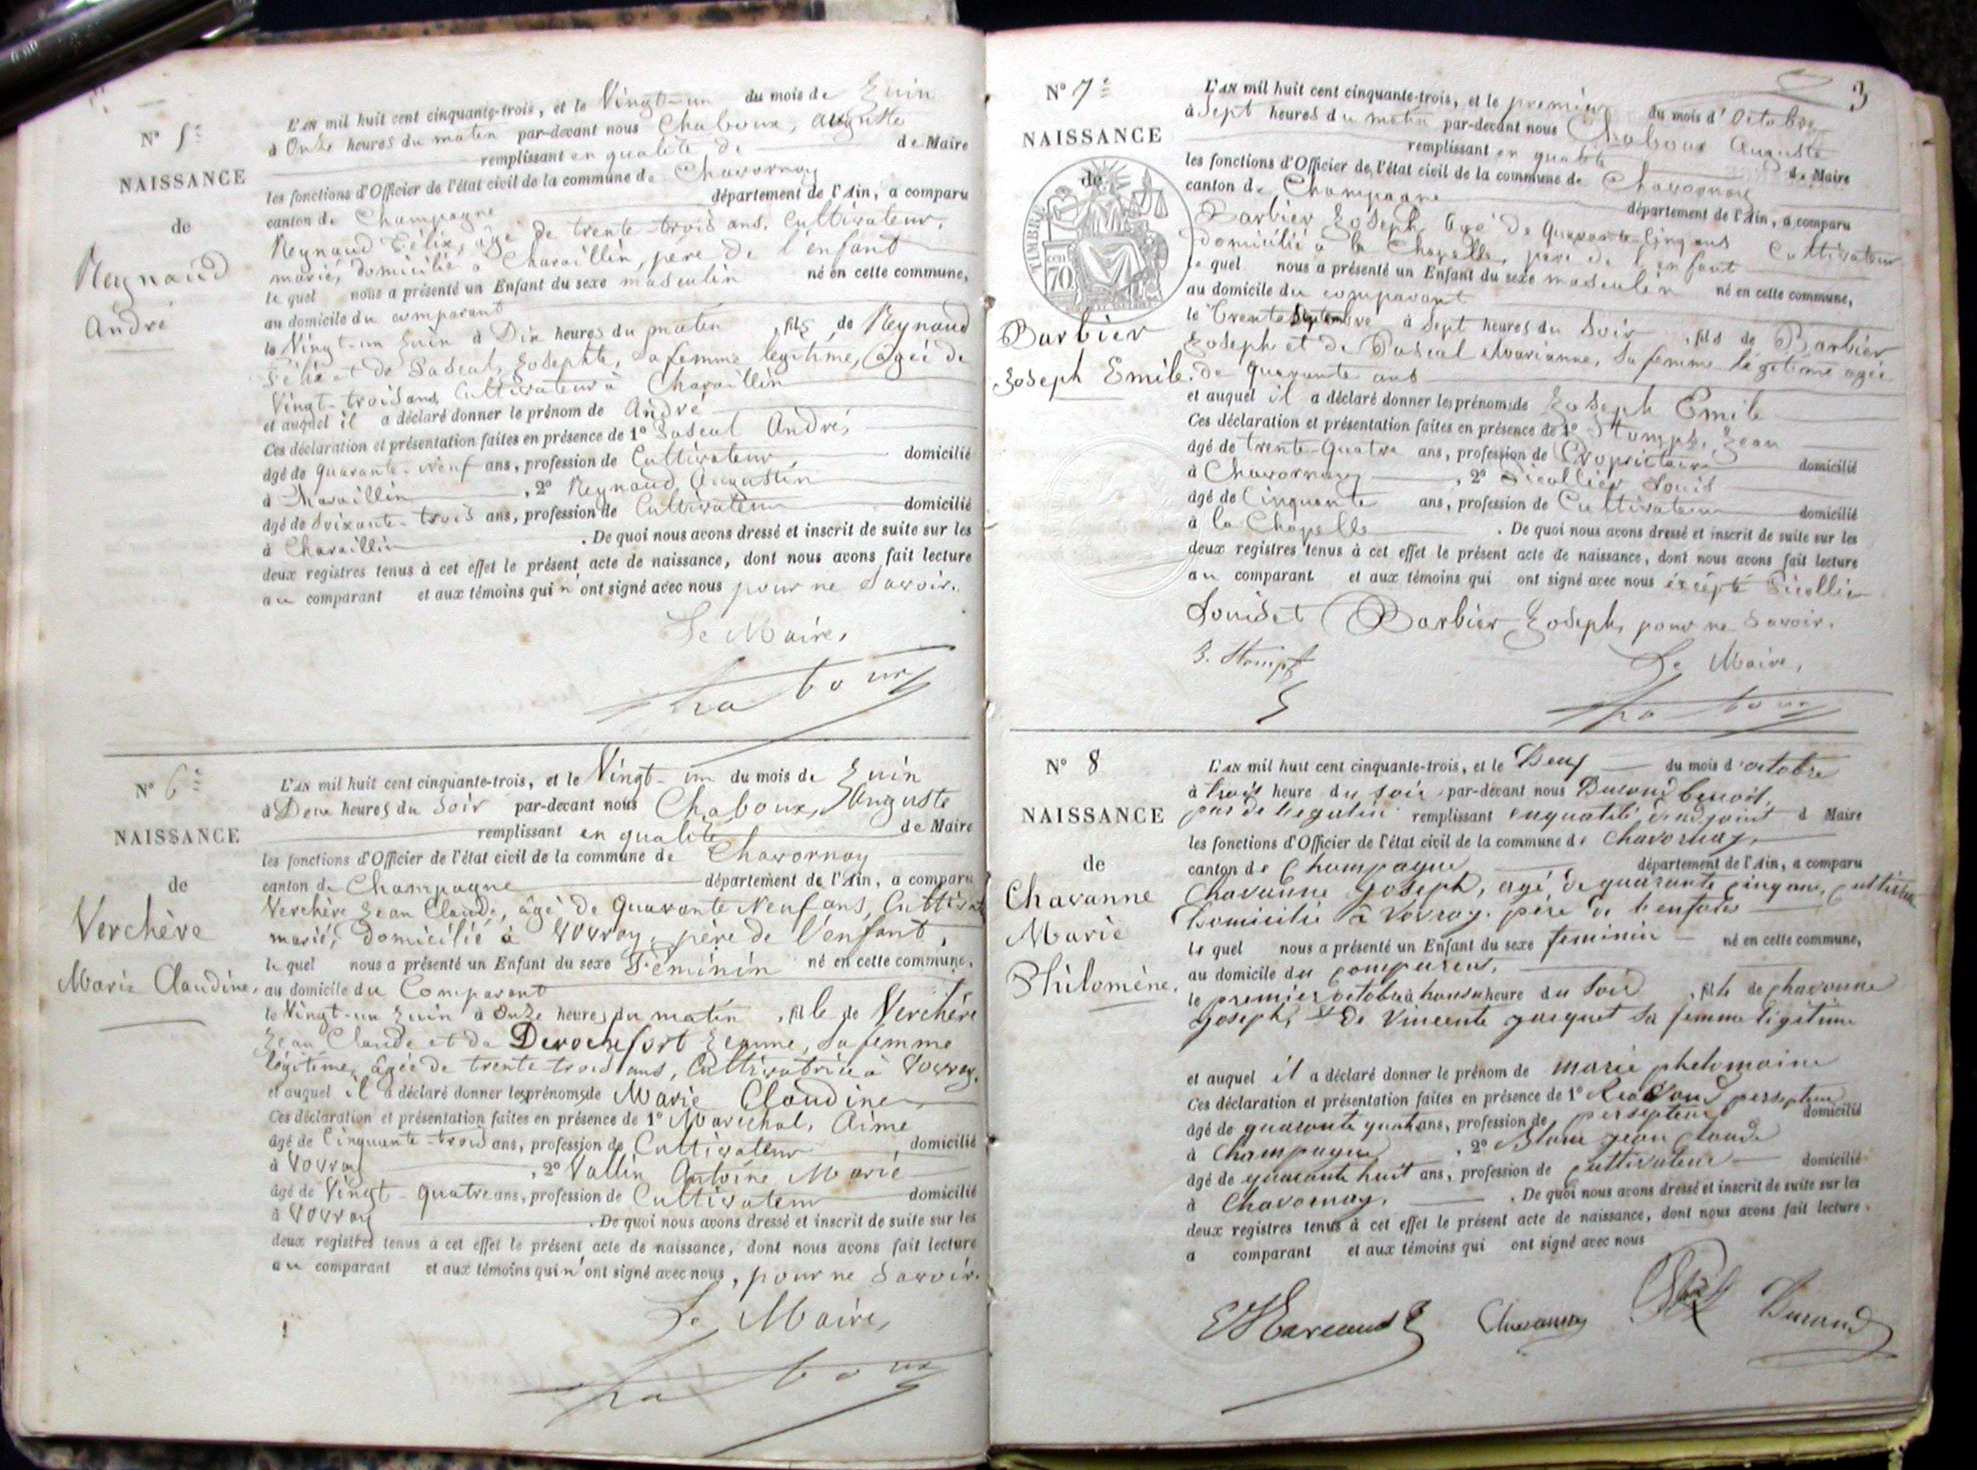 N° 5e
NAISSANCE
de
Reynaud
André
L'AN mil huit cent cinquante-trois, et le Vingt-un du mois de Juin
à Onze heures du matin par-devant nous Chaboux, Auguste
remplissant en qualité de de Maire
les fonctions d'Officier de l'état civil de la commune de Chavornay
canton de Champagne département de l'Ain, a comparu
Reynaud Félix, âgé de trente-trois ans, Cultivateur,
marié, domicilié à Charaillin, père de l'enfant
le quel nous a présenté un Enfant du sexe masculin né en cette commune,
au domicile du comparant
le Vingt-un Juin à Dix heures du matin, fils de Reynaud
Félix et de Pascal, Josephte, sa femme légitime, âgée de
Vingt-trois ans, Cultivateur à Charaillin
et auquel il a déclaré donner le prénom de André
Ces déclaration et présentation faites en présence de 1° Pascal André,
âgé de quarante-neuf ans, profession de Cultivateur, domicilié
à Charaillin, 2° Reynaud Augustin
âgé de soixante-trois ans, profession de Cultivateur domicilié
à Charaillin. De quoi nous avons dressé et inscrit de suite sur les
deux registres tenus à cet effet le présent acte de naissance, dont nous avons fait lecture
au comparant et aux témoins qui n'ont signé avec nous pour ne savoir.
Le Maire,
Chaboux
N° 6e
NAISSANCE
de
Verchère
Marie Claudine.
L'AN mil huit cent cinquante-trois, et le Vingt-un du mois de Juin
à Deux heures du soir par-devant nous Chaboux, Auguste
remplissant en qualité de Maire
les fonctions d'Officier de l'état civil de la commune de Chavornay
canton de Champagne département de l'Ain, a comparu
Verchère Jean Claude, âgé de quarante neuf ans, Cultivat
marié, domicilié à Vovray, père de l'enfant,
le quel nous a présenté un Enfant du sexe Féminin né en cette commune,
au domicile du Comparant
le Vingt-un Juin à Onze heures du matin, fille de Verchère
Jean Claude et de Derochefort Jeanne, sa femme
légitime, âgée de trente trois ans, Cultivatrice à Vovray,
et auquel il a déclaré donner les prénoms de Marie Claudine
Ces déclaration et présentation faites en présence de 1° Maréchal, Aimé
âgé de Cinquante-trois ans, profession de Cultivateur domicilié
à Vovray, 2° Vallin Antoine Marie
âgé de Vingt-quatre ans, profession de Cultivateur domicilié
à Vovray. De quoi nous avons dressé et inscrit de suite sur les
deux registres tenus à cet effet le présent acte de naissance, dont nous avons fait lecture
au comparant et aux témoins qui n'ont signé avec nous, pour ne savoir.
Le Maire,
Chaboux
3
N° 7e
NAISSANCE
de
TIMBRE
70
Barbier
Joseph Emile.
L'AN mil huit cent cinquante-trois, et le premier du mois d'Octobre
à Sept heures du matin par-devant nous Chaboux Auguste
remplissant en qualité de Maire
les fonctions d'Officier de l'état civil de la commune de Chavornay
canton de Champagne département de l'Ain, a comparu
Barbier Joseph âgé de quarante-cinq ans Cultivateur
domicilié à la Chapelle, père de l'enfant
le quel nous a présenté un Enfant du sexe masculin né en cette commune,
au domicile du comparant
le trente Septembre à Sept heures du Soir, fils de Barbier
Joseph et de Pascal Marianne, sa femme légitime âgée
de quarante ans
et auquel il a déclaré donner les prénoms de Joseph Emile
Ces déclaration et présentation faites en présence de 1° Stompf, Jean
âgé de trente-quatre ans, profession de Propriétaire domicilié
à Chavornay, 2° Picollier Louis
âgé de Cinquante ans, profession de Cultivateur domicilié
à la Chapelle. De quoi nous avons dressé et inscrit de suite sur les
deux registres tenus à cet effet le présent acte de naissance, dont nous avons fait lecture
au comparant et aux témoins qui ont signé avec nous excepté Picollier
Louis et Barbier Joseph, pour ne savoir.
J. Stompf
Le Maire,
Chaboux
N° 8
NAISSANCE
de
Chavanne
Marie
Philomène.
L'AN mil huit cent cinquante-trois, et le Deux du mois d'octobre
à trois heure du soir par-devant nous Durand benoit,
par délégation remplissant en qualité d'adjoint d Maire
les fonctions d'Officier de l'état civil de la commune de Chavornay
canton de Champagne département de l'Ain, a comparu
Chavanne Joseph, agé de quarante cinq ans, cultivateur
Domicilié à Vovray. père de l'enfant
le quel nous a présenté un Enfant du sexe feminin né en cette commune,
au domicile du comparent,
le premier octobre à heure du soir, fille de chavanne
joseph, et de Vincente jacquet sa femme légitime
et auquel il a déclaré donner le prénom de marie phelomaine
Ces déclaration et présentation faites en présence de 1° persepteur
âgé de quarante quatr ans, profession de persepteur domicilié
à Champagne, 2° jean claude
âgé de quarante huit ans, profession de cultivateur domicilié
à Chavornay. De quoi nous avons dressé et inscrit de suite sur les
deux registres tenus à cet effet le présent acte de naissance, dont nous avons fait lecture
a comparant et aux témoins qui ont signé avec nous
Chavanne Durand